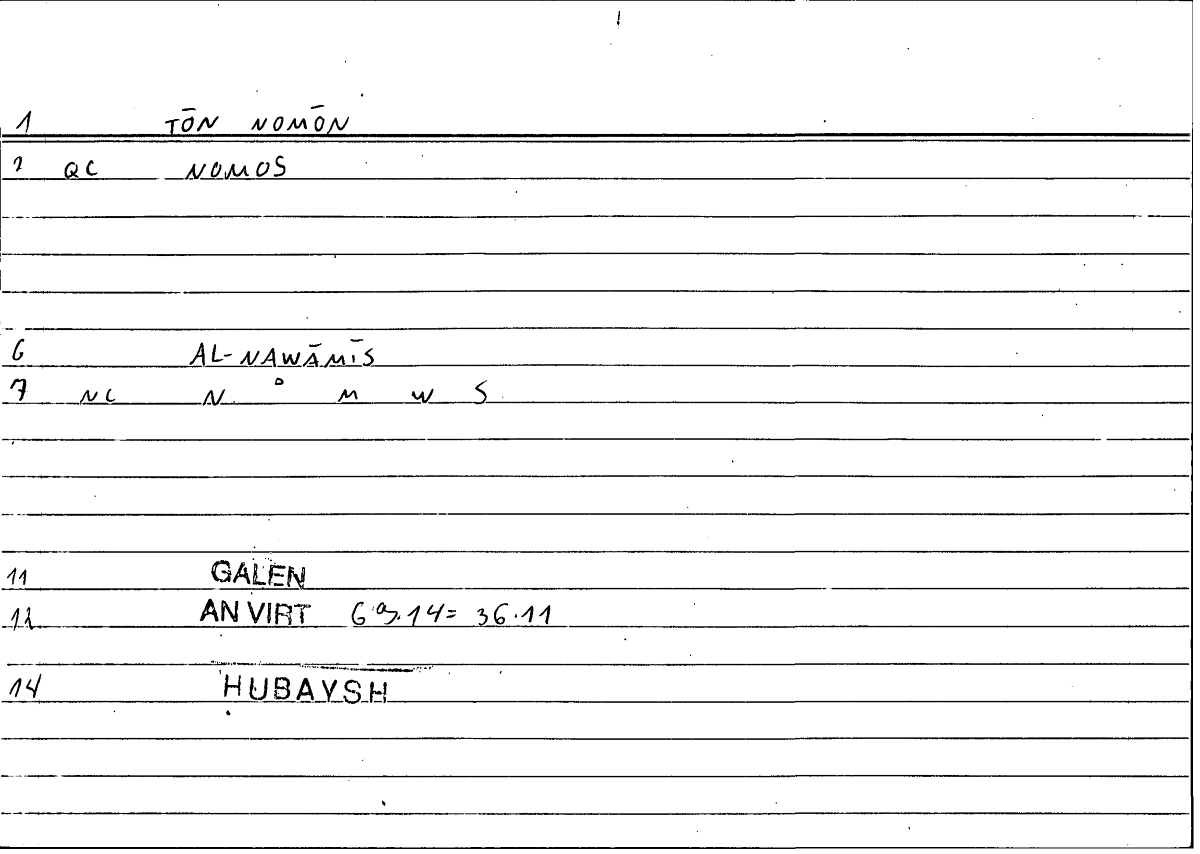 1 TŌN NOMŌN
2 QC NOMOS
6 AL-NAWĀMĪS
7 NC N ° M W S
11 GALEN
12 AN VIRT 69.14= 36.11
14 HUBAYSH